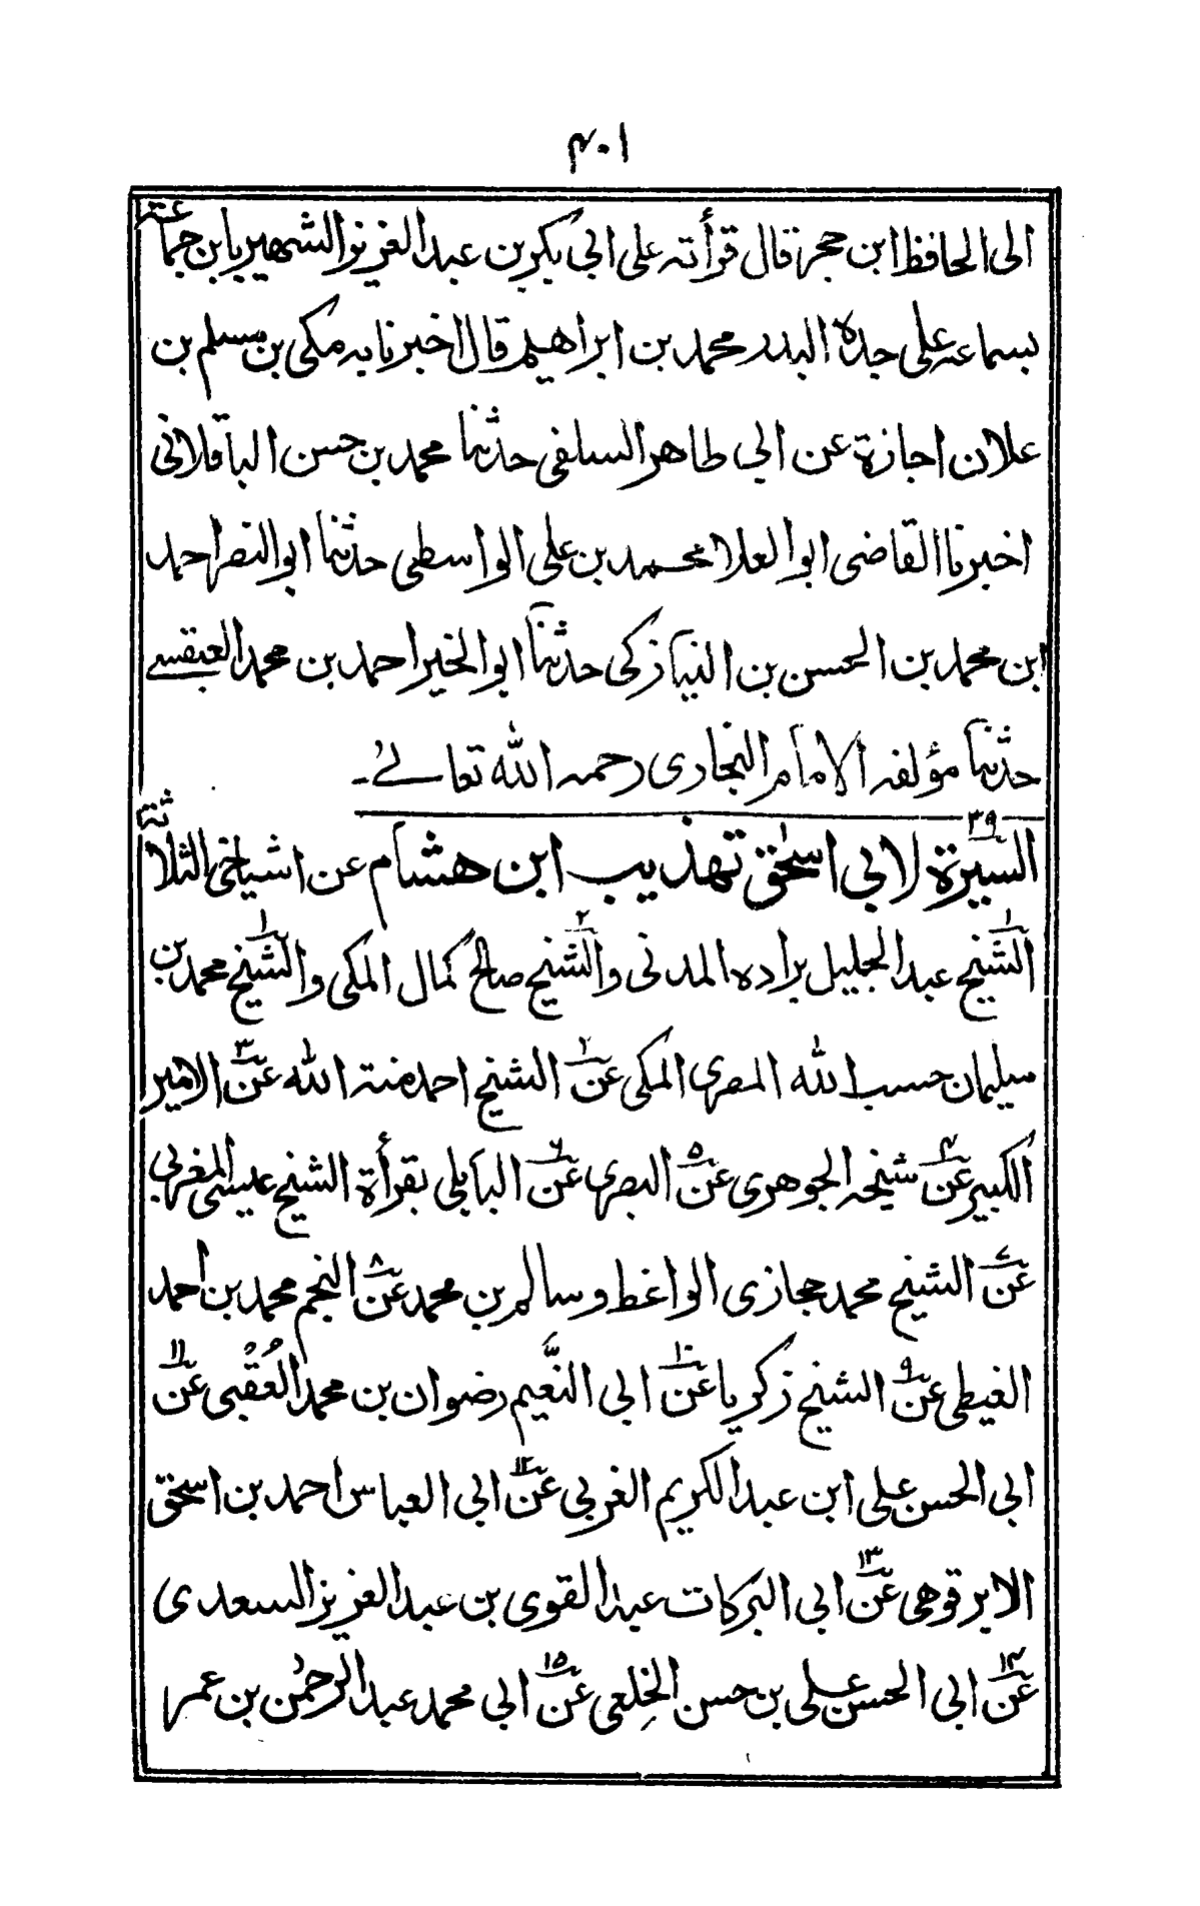 ۴۰۱
الى الحافظ ابن حجر قال قرأته على ابي بكر بن عبدالعزيز الشهير بابن جماعة
بسماعه على جده البدر محمد بن ابراهيم قال اخبرنا به مكى بن مسلم بن
علان اجازة عن ابي طاهر السلفى حدثنا محمد بن حسن الباقلانى
اخبرنا القاضى ابو العلا محمد بن على الواسطى حدثنا ابو النصر احمد
ابن محمد بن الحسن بن النيازكى حدثنا ابو الخير احمد بن محمد العبقسے
حدثنا مؤلفه الامام البخارى رحمه الله تعالےٰ۔
۳۹
السيرة لابي اسحٰق تهذيب ابن هشام عن اشياخى الثلاثة
الشيخ۱ عبد الجليل براده المدنى والشيخ۲ صالح كمال المكى والشيخ۱ محمد بن
سليمان حسب الله المصرى المكى عن۲ الشيخ احمد منة الله عن۳ الامير
الكبير عن۴ شيخه الجوهرى عن۵ البصرى عن۶ البابلى بقرأة الشيخ عيسى المغربى
عن۷ الشيخ محمد حجازى الواعظ وسالم بن محمد عن۸ النجم محمد بن احمد
الغيطى عن۹ الشيخ زكريا عن۱۰ ابى النَّعيم رضوان بن محمد العُقْبى عن۱۱
ابى الحسن على ابن عبد الكريم الغربى عن۱۲ ابى العباس احمد بن اسحٰق
الابرقوهى عن۱۳ ابى البركات عبد القوى بن عبد العزيز السعدى
عن۱۴ ابى الحسن على بن حسن الخِلعى عن۱۵ ابى محمد عبد الرحمٰن بن عمر